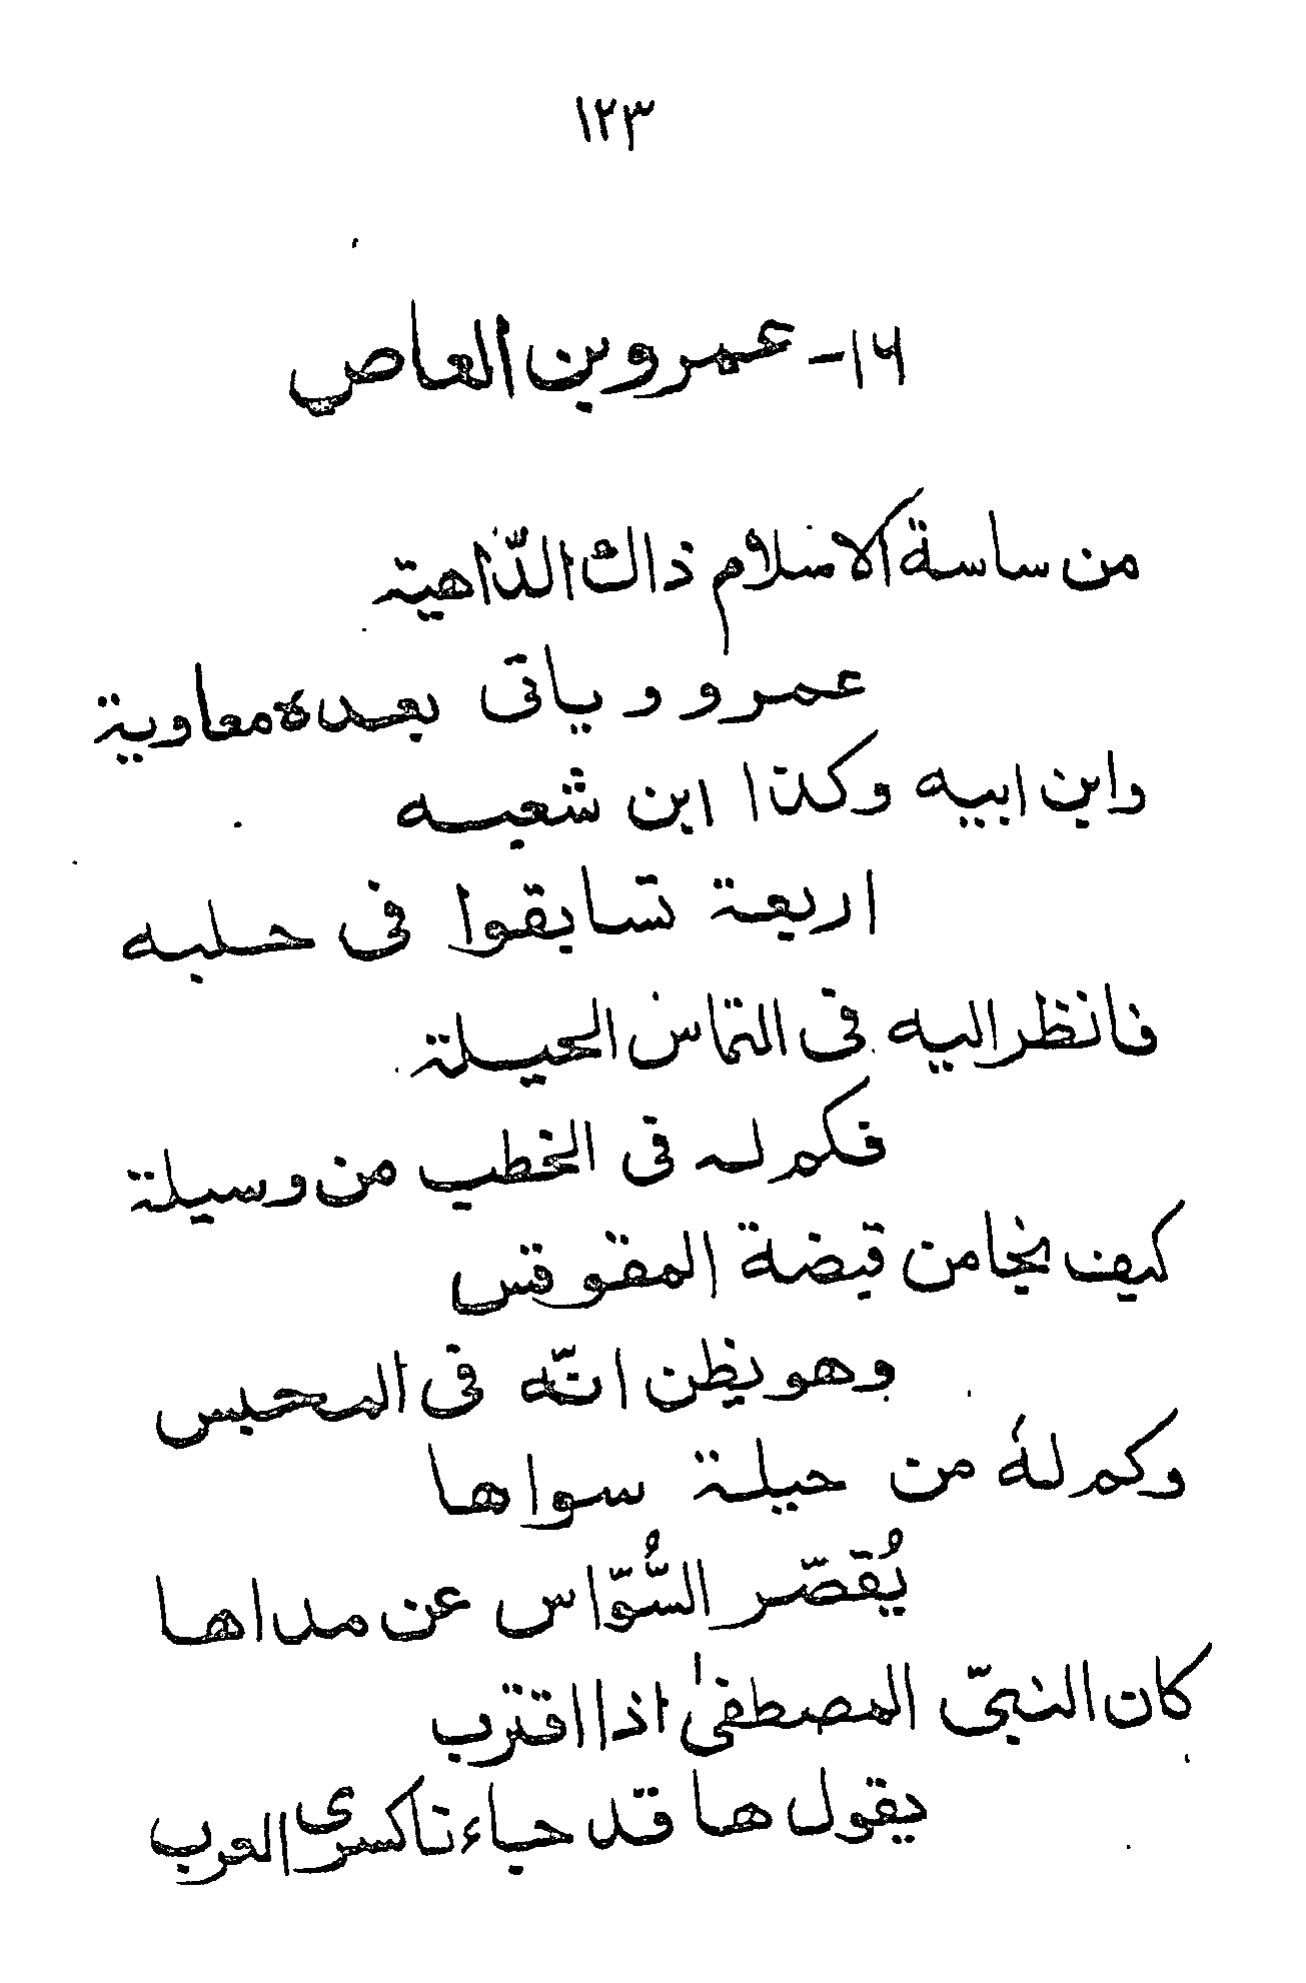 ١٢٣
١٦- عمرو بن العاص
من ساسة الاسلام ذاك الدّاهية
عمرو و ياتى بعده معاوية
وابن ابيه وكذا ابن شعبه
اربعة تسابقوا فى حلبه
فانظر اليه فى التماس الحيلة
فكم له فى الخطب من وسيلة
كيف نجا من قبضة المقوقس
وهو يظن انّه فى المحبس
وكم لهُ من حيلة سواها
يُقصّر السُّوّاس عن مداها
كان النبىّ المصطفىٰ اذا اقترب
يقول ها قد جاءنا كسرى العرب